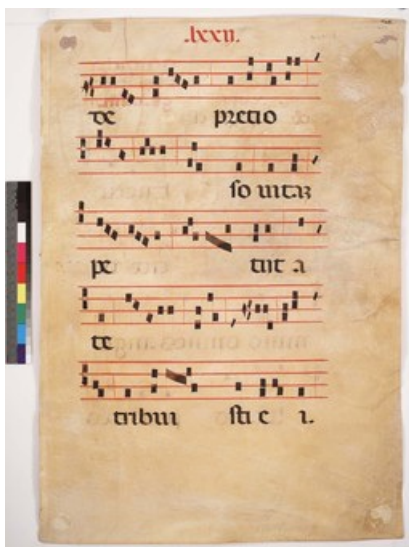 .lxxii.
de pretio
so uitaʒ
pe tiit a
te
tribui sti e i.